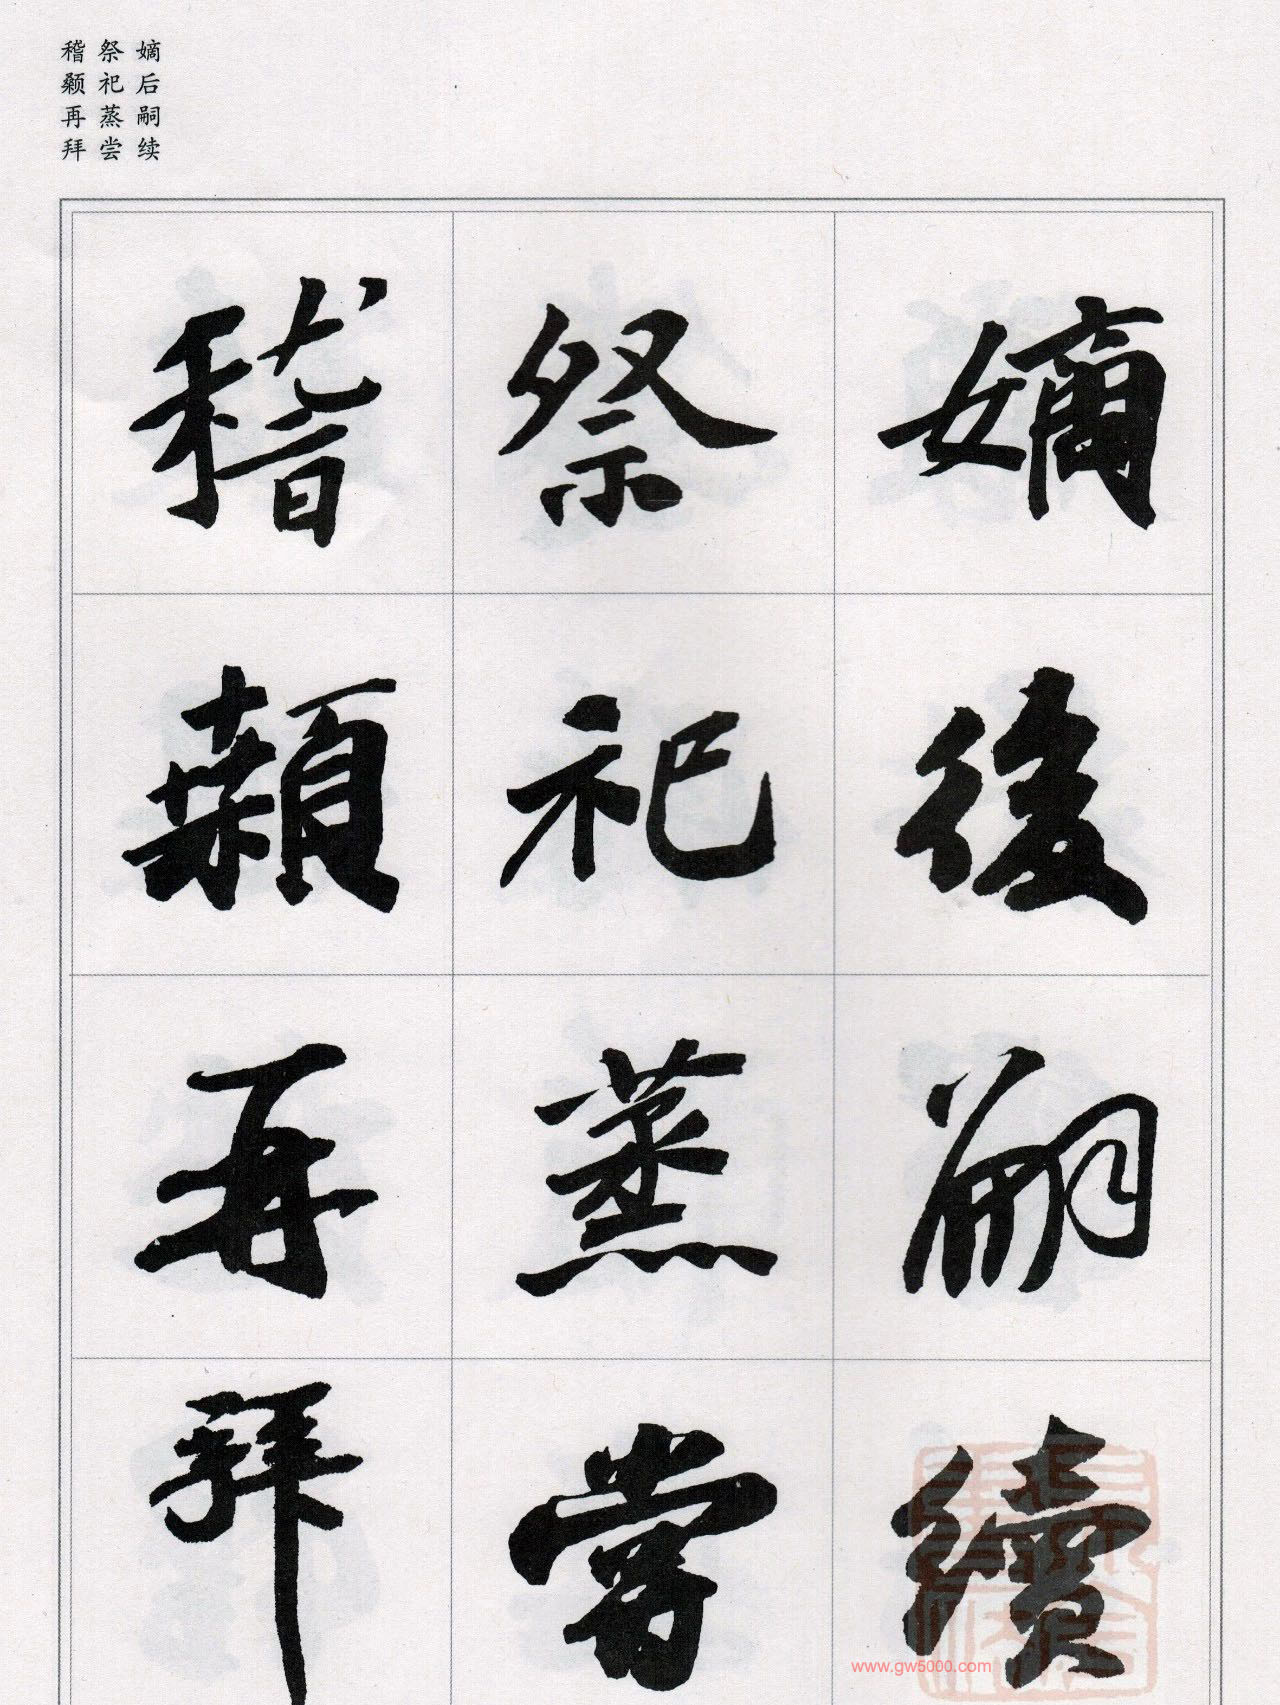 嫡后嗣续
祭祀蒸尝
稽颡再拜
嫡後嗣續
祭祀蒸嘗
稽顙再拜
www.gw5000.com